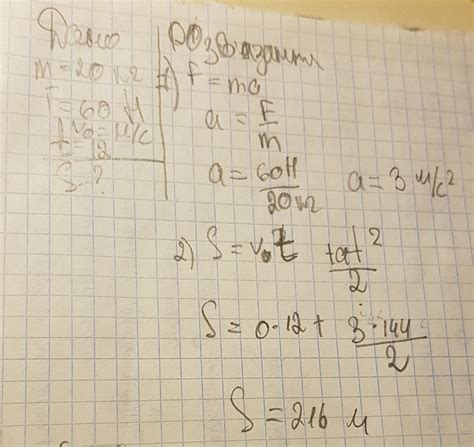 Дано
m = 20 кг
F = 60 Н
v₀ = м/с
t = 12
S - ?
Розвязання
1) F = ma
a = F/m
a = 60Н/20кг a = 3 м/с²
2) S = v₀t + at²/2
S = 0·12 + 3·144/2
S = 216 м